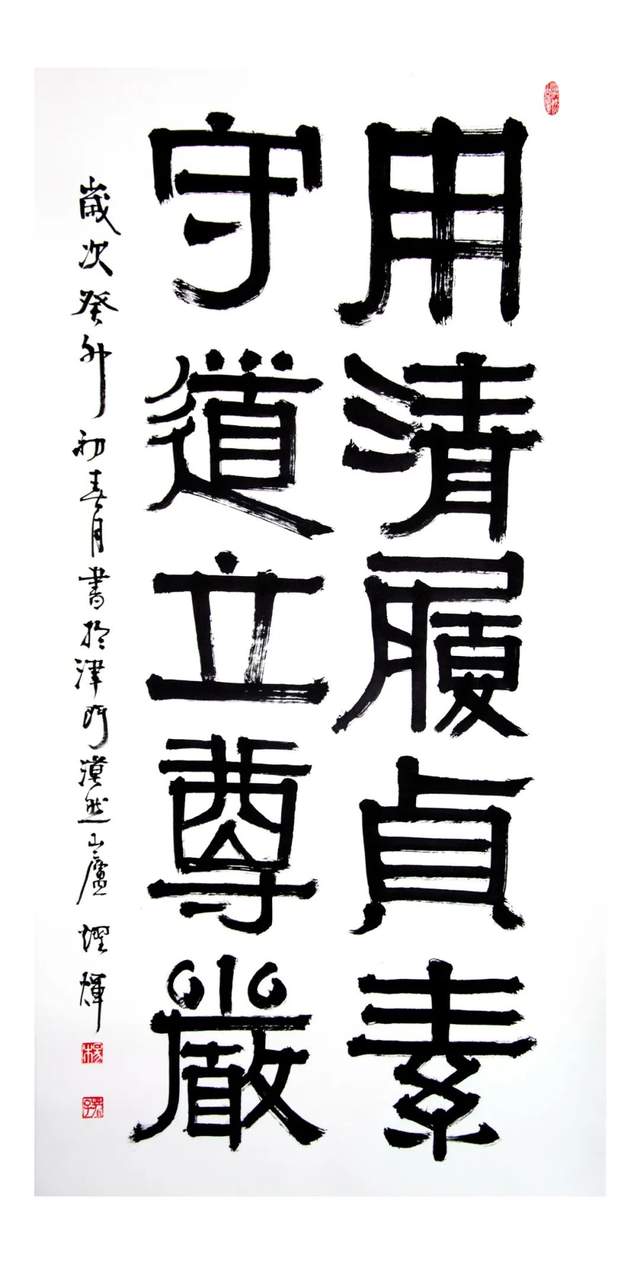 用清履貞素
守道立尊嚴
歲次癸卯初春月書於津門漠然山廬 燿輝